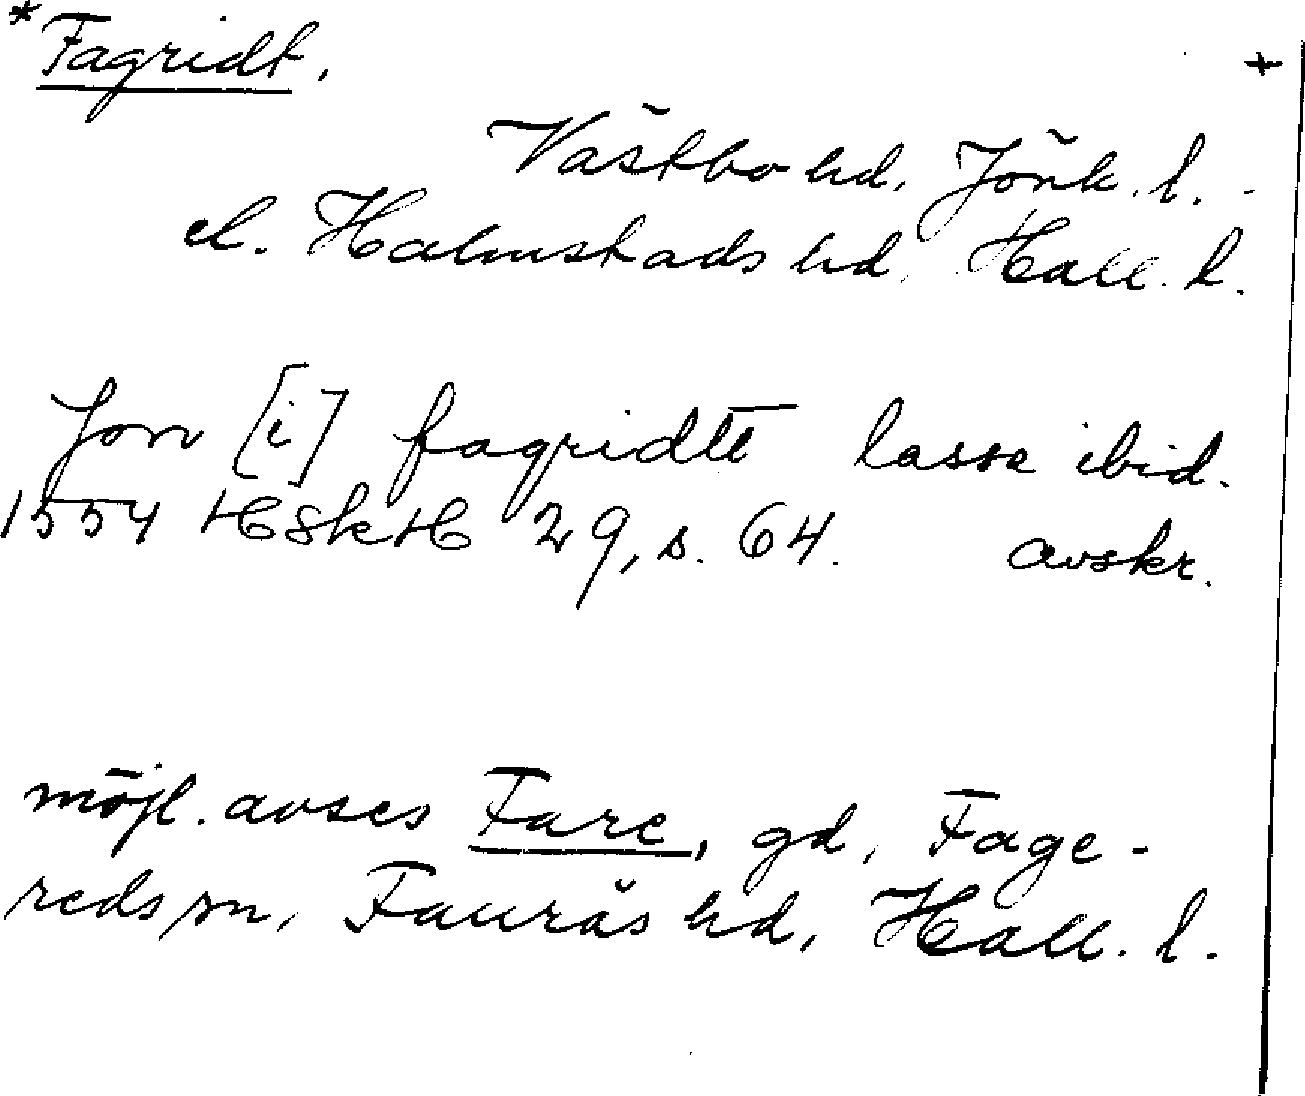 *Fagridt. +
Västbo hd, Jönk. l.
el. Halmstads hd, Hall. l.
Jon [i] fagridtē lasse ibid.
1554 HSkH 29, s. 64. avskr.
möjl. avses Fare, gd, Fage-
reds sn, Faurås hd, Hall. l.